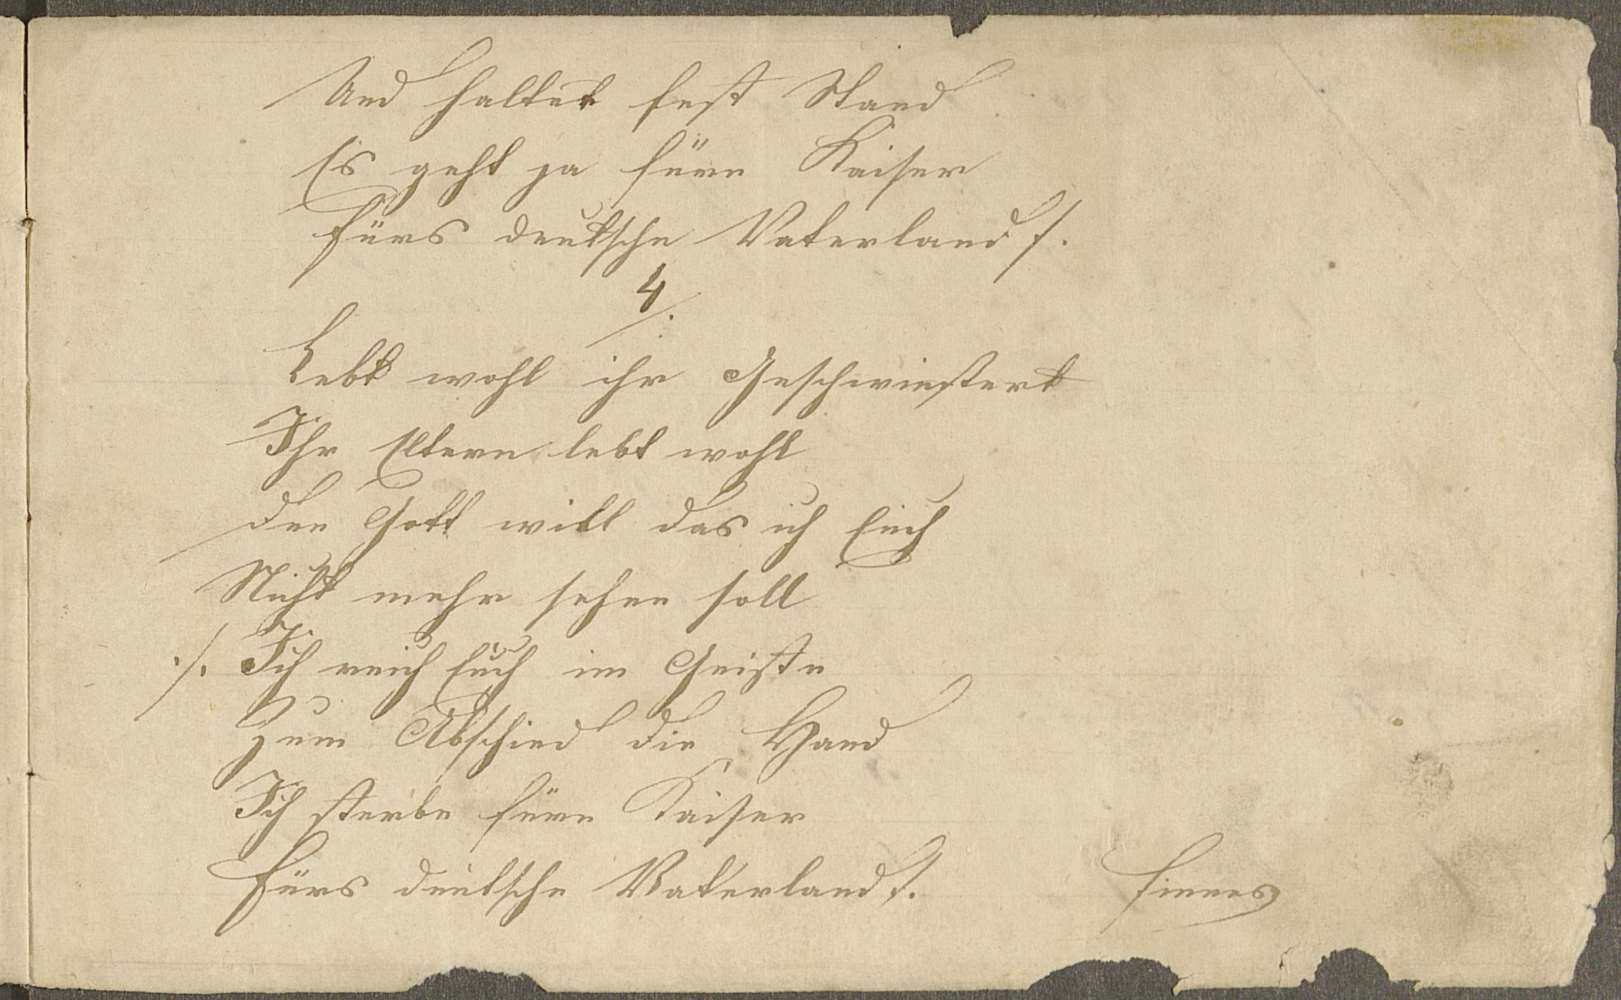 Und haltet fest Stand
Es geht ja fürn Kaiser
Fürs deutsche Vaterland /.
4.
Lebt wohl ihr Geschwiestert
Ihr Eltern lebt wohl
den Gott will das ich Euch
Nicht mehr sehen soll
./. Ich reich Euch im Geiste
Zum Abschied die Hand
Ich sterbe fürn Kaiser
Fürs deutsche Vaterland /.